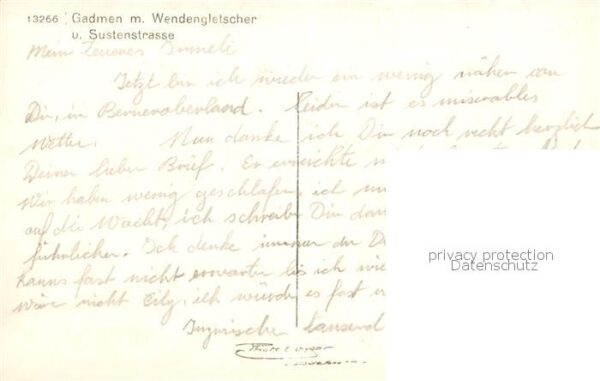 13266 Gadmen m. Wendengletscher
u. Sustenstrasse
Mein Teueres
Jetzt bin ich wieder ein wenig näher von
Dir, in Berneroberland. Leider ist es miserables
Wetter. Nun danke ich Dir noch recht herzlich
Deiner lieber Brief. Er erreichte
Wir haben wenig geschlafen, ich
auf die Wacht, ich schreibe Dir
führlicher. Ich denke immer an D
kanns fast nicht erwarten bis ich wie
wäre nicht ich würde es fast
Inzwischen tausend
privacy protection
Datenschutz